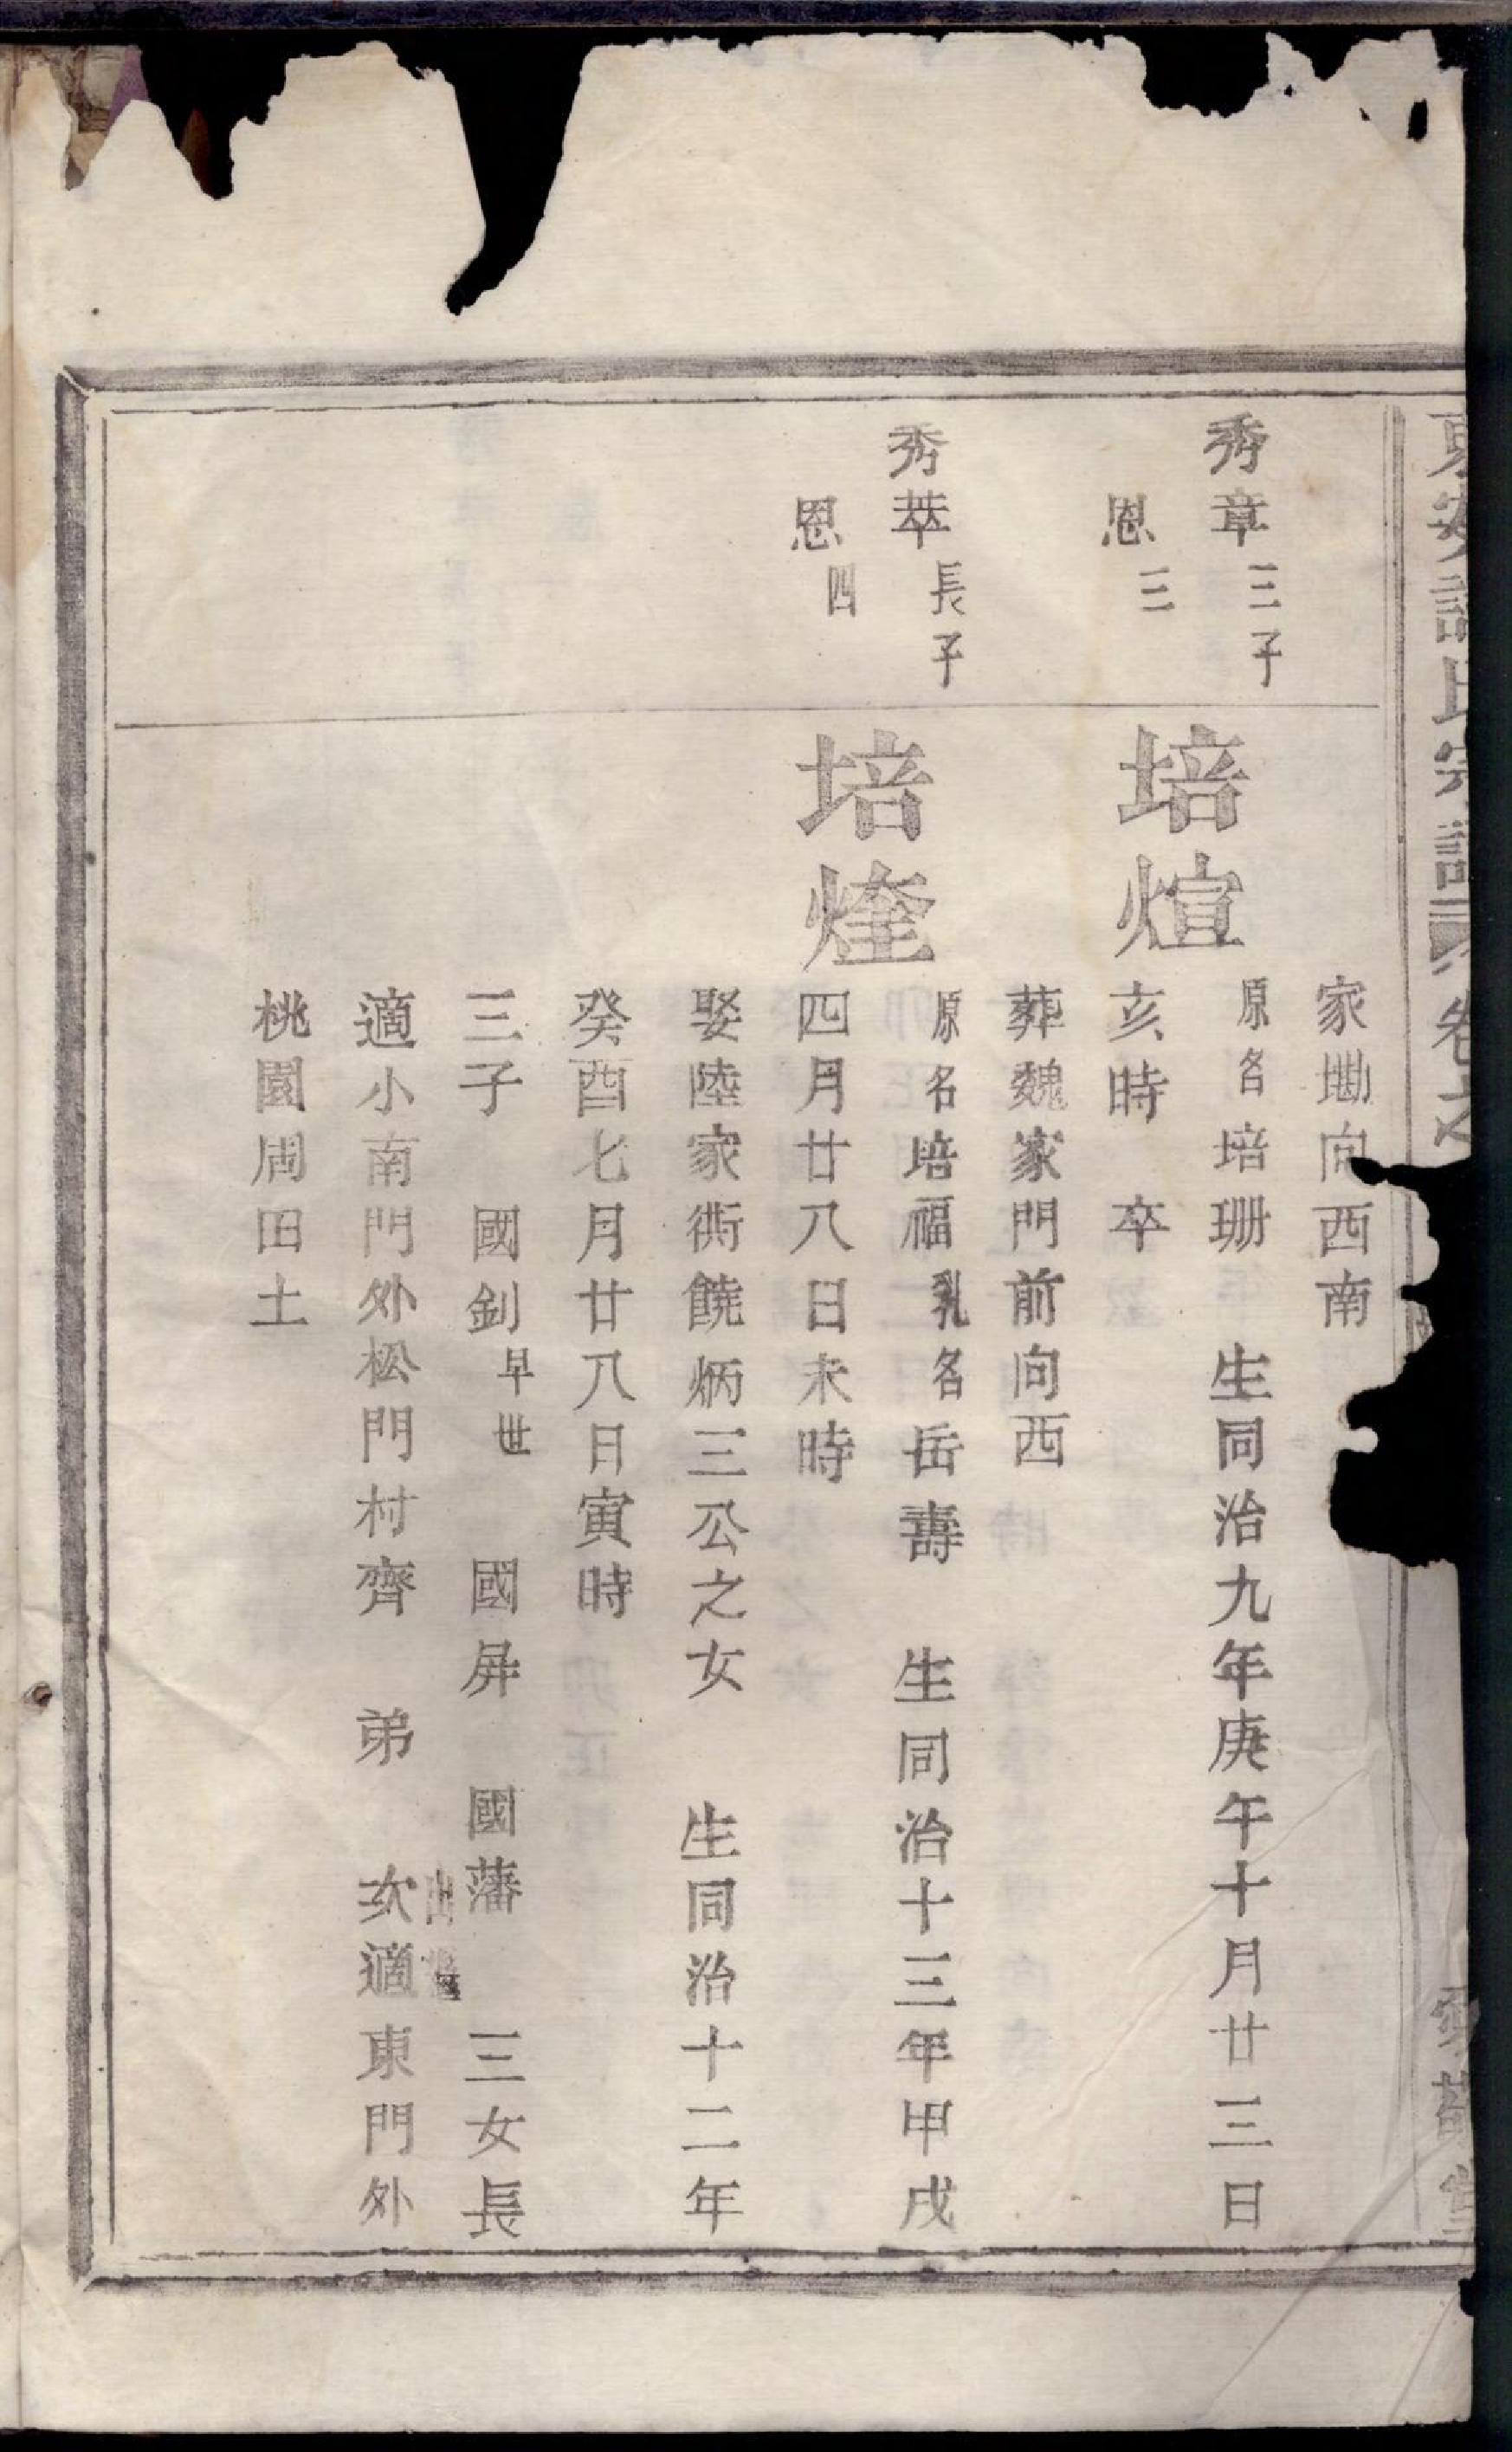 家塝向西南
秀章三子
恩三
培煊
原名培珊 生同治九年庚午十月廿三日
亥時 卒
葬魏家門前向西
秀萃長子
恩四
培煃
原名培福乳名岳壽 生同治十三年甲戌
四月廿八日未時
娶陸家衖饒炳三公之女 生同治十二年
癸酉七月廿八日寅時
三子 國釗早世 國屏 國藩 三女長
適小南門外松門村齊 弟 次適東門外
桃園周田土